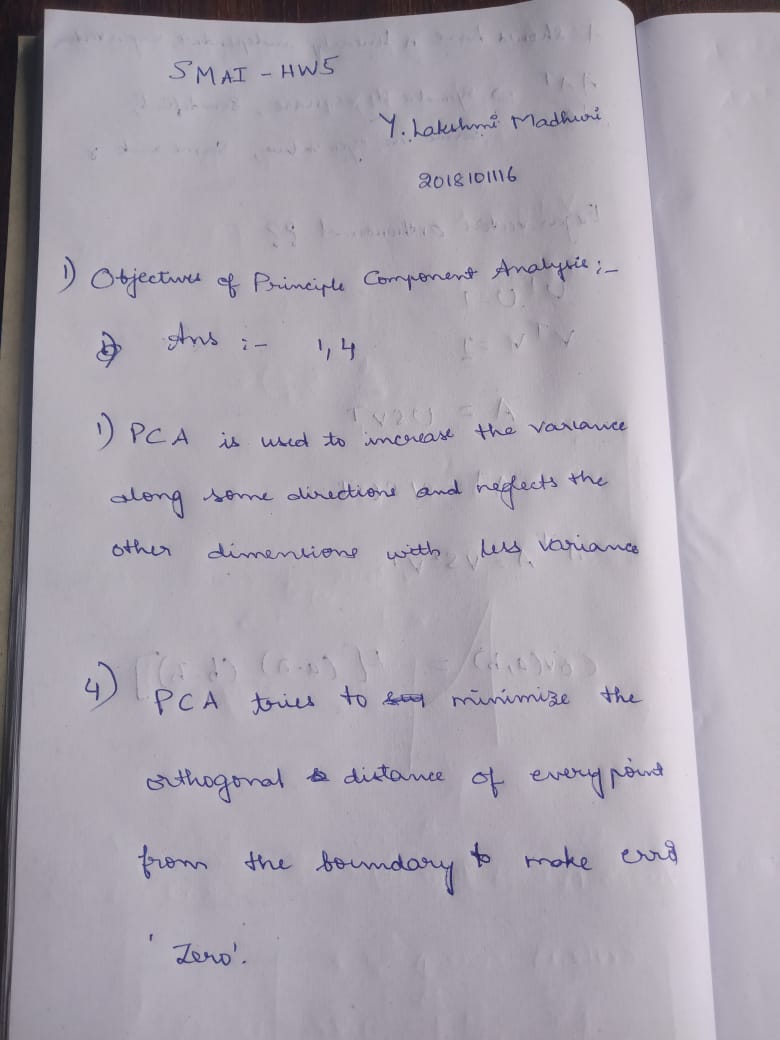 SMAI - HW5
Y. Lakshmi Madhuri
2018101116
1) Objectives of Principle Component Analysis :-
Ans :- 1, 4
1) PCA is used to increase the variance
along some directions and neglects the
other dimensions with less variance
4) PCA tries to minimize the
orthogonal distance of every point
from the boundary to make error
'Zero'.